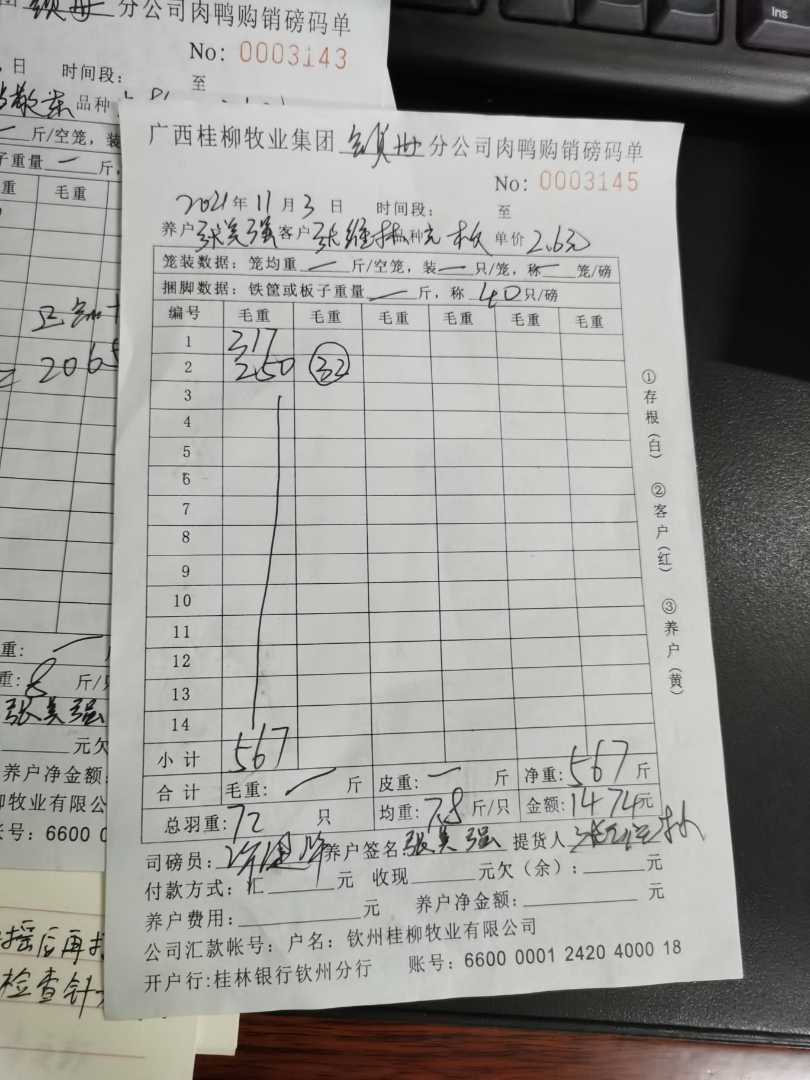 分公司肉鸭购销磅码单
No: 0003143
日 时间段: 至
品种
斤/空笼, 装
子重量 一 斤,
重 毛重
= 2065
重: 一
重: 8 斤/只
张美强
元欠
养户净金额:
柳牧业有限公
账号: 6600 0
摇后再
检查针
Ins
广西桂柳牧业集团 分公司肉鸭购销磅码单
No: 0003145
2021年11月3日 时间段: 至
养户 张美强 客户 张维林 品种 单价 2.6元
笼装数据: 笼均重 一 斤/空笼, 装 一 只/笼, 称 一 笼/磅
捆脚数据: 铁筐或板子重量 一 斤, 称 40只/磅
编号 毛重 毛重 毛重 毛重 毛重 毛重
1 317
2 250 32
3
4
5
6
7
8
9
10
11
12
13
14
小计 567
合计 毛重: 一 斤 皮重: 一 斤 净重: 567 斤
总羽重: 72 只 均重: 7.8 斤/只 金额: 1474元
司磅员: 养户签名 张美强 提货人 张维林
付款方式: 汇 元 收现 元欠(余): 元
养户费用: 元 养户净金额: 元
公司汇款帐号: 户名: 钦州桂柳牧业有限公司
开户行:桂林银行钦州分行 账号: 6600 0001 2420 4000 18
①存根(白) ②客户(红) ③养户(黄)